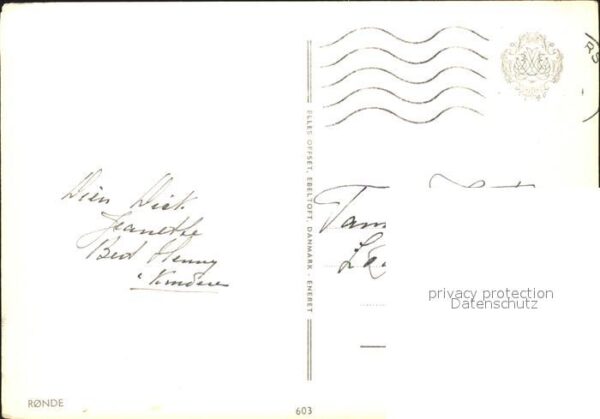 Dien Dick
Jeanette
Bed Henny
ELLES OFFSET, EBELTOFT, DANMARK - ENERET
RS
privacy protection
Datenschutz
RØNDE
603